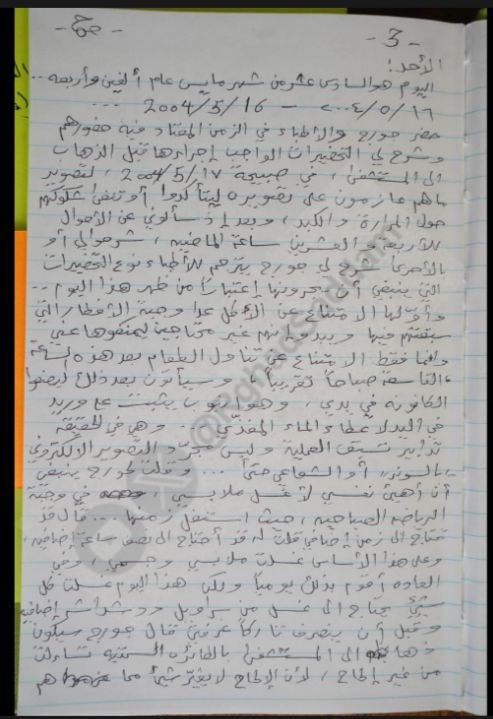 -3-
الأحد:
اليوم هو السادس عشر من شهر مايس عام ألفين وأربعه ..
١٦/٥/٢٠٠٤ - 2004/5/16 ...
حضر جورج والأطباء في الزمن المعتاد فيه حضورهم
وشرح لي التحضيرات الواجب إجراءها قبل الذهاب
الى المستشفى، في صبيحة 2004/5/17، لتصوير
ما هم عازمون على تصويره ليتأكدوا أو تنفى شكوكهم
حول المرارة والكبد، وبعد إذ سألوني عن الأحوال
للأربعة والعشرين ساعة الماضيه، شرحوا لي أو
بالأحرى شرح لي جورج يترجم للأطباء نوع التحضيرات
التي ينبغي أن يجرونها إعتباراً من ظهر هذا اليوم ..
وأولها الامتناع عن الأكل عدا وجبة الأفطار التي
سبقتهم فيها ويبدو أنهم غير محتاجين ليمنعوها عني
وانما فقط الامتناع عن تناول الطعام بعد هذه الساعة
التاسعة صباحاً تقريباً .. وسيأتون بعد ذلك ليضعوا
الكانونه في يدي، وهو انبوب يثبت على وريد
في اليد لاعطاء الماء المغذي .. وهي في الحقيقة
تدابير تسبق العملية وليس مجرد التصوير الالكتروني
بالسونر، أو الشعاعي حتى ... وقلت لجورج ينبغي
أن أهيئ نفسي لأغسل ملابسي، في وجبة
الرياضه الصباحيه، حيث استغل زمنها .. قال قد
تحتاج الى زمن إضافي قلت له قد أحتاج الى نصف ساعة إضافيه،
وعلى هذا الأساس غسلت ملابسي وجسمي وفي
العاده أقوم بذلك يومياً ولكن هذا اليوم غسلت كل
شيئ يحتاج الى غسل من سراويل ودشداشه إضافيه
وقبل أن ينصرف تاركاً غرفتي قال جورج سيكون
ذهابك الى المستشفى بالطائره السمتيه تساءلت
من غير إلحاح، لأن الإلحاح لا يغير شيئاً مما هم
@RghadSaddam